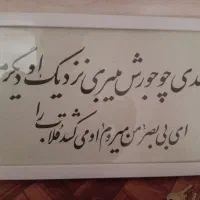 سعدی چو جورش میبری نزدیک او دیگر
ای بی بصر من میروم او می کشد قلاب را